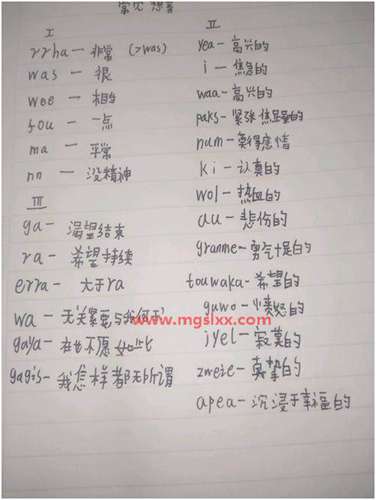 常见想音
I
rrha — 非常 (>was)
was — 很
wee — 相当
fou — 一点
ma — 平常
nn — 没精神
III
ga — 渴望结束
ra — 希望持续
erra — 大于ra
wa — 无关紧要与我何干
gaya — 在也不愿如此
gagis — 我怎样都无所谓
II
yea — 高兴的
i — 焦急的
waa — 高兴的
paks — 紧张焦虑的
num — 莫得感情
ki — 认真的
wol — 热血的
au — 悲伤的
granme — 勇气十足的
touwaka — 希望的
guwo — 愤怒的
jyel — 寂寞的
zweie — 真挚的
apea — 沉浸于幸福的
www.mgslxx.com